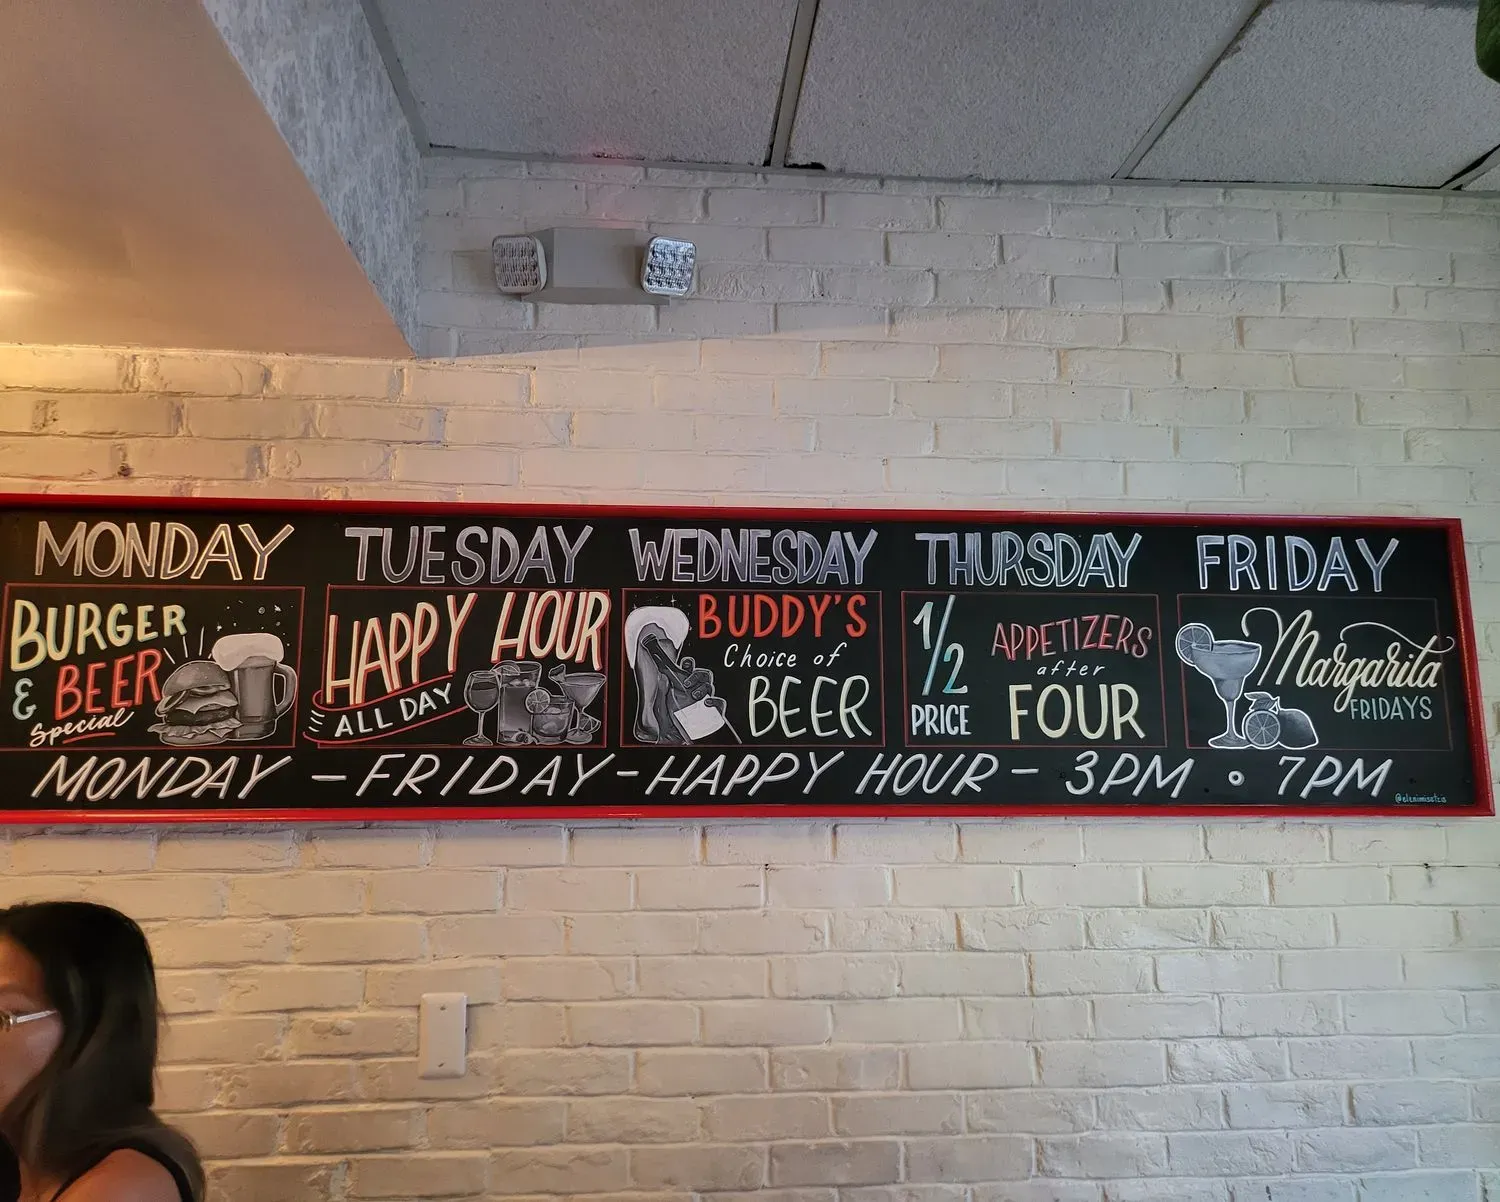 MONDAY
BURGER
& BEER
Special
TUESDAY
HAPPY HOUR
ALL DAY
WEDNESDAY
BUDDY'S
Choice of
BEER
THURSDAY
1/2
PRICE
APPETIZERS
after
FOUR
FRIDAY
Margarita
FRIDAYS
MONDAY - FRIDAY - HAPPY HOUR - 3PM • 7PM